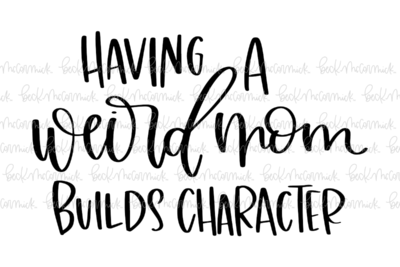 HAVING A
weird mom
BUILDS CHARACTER